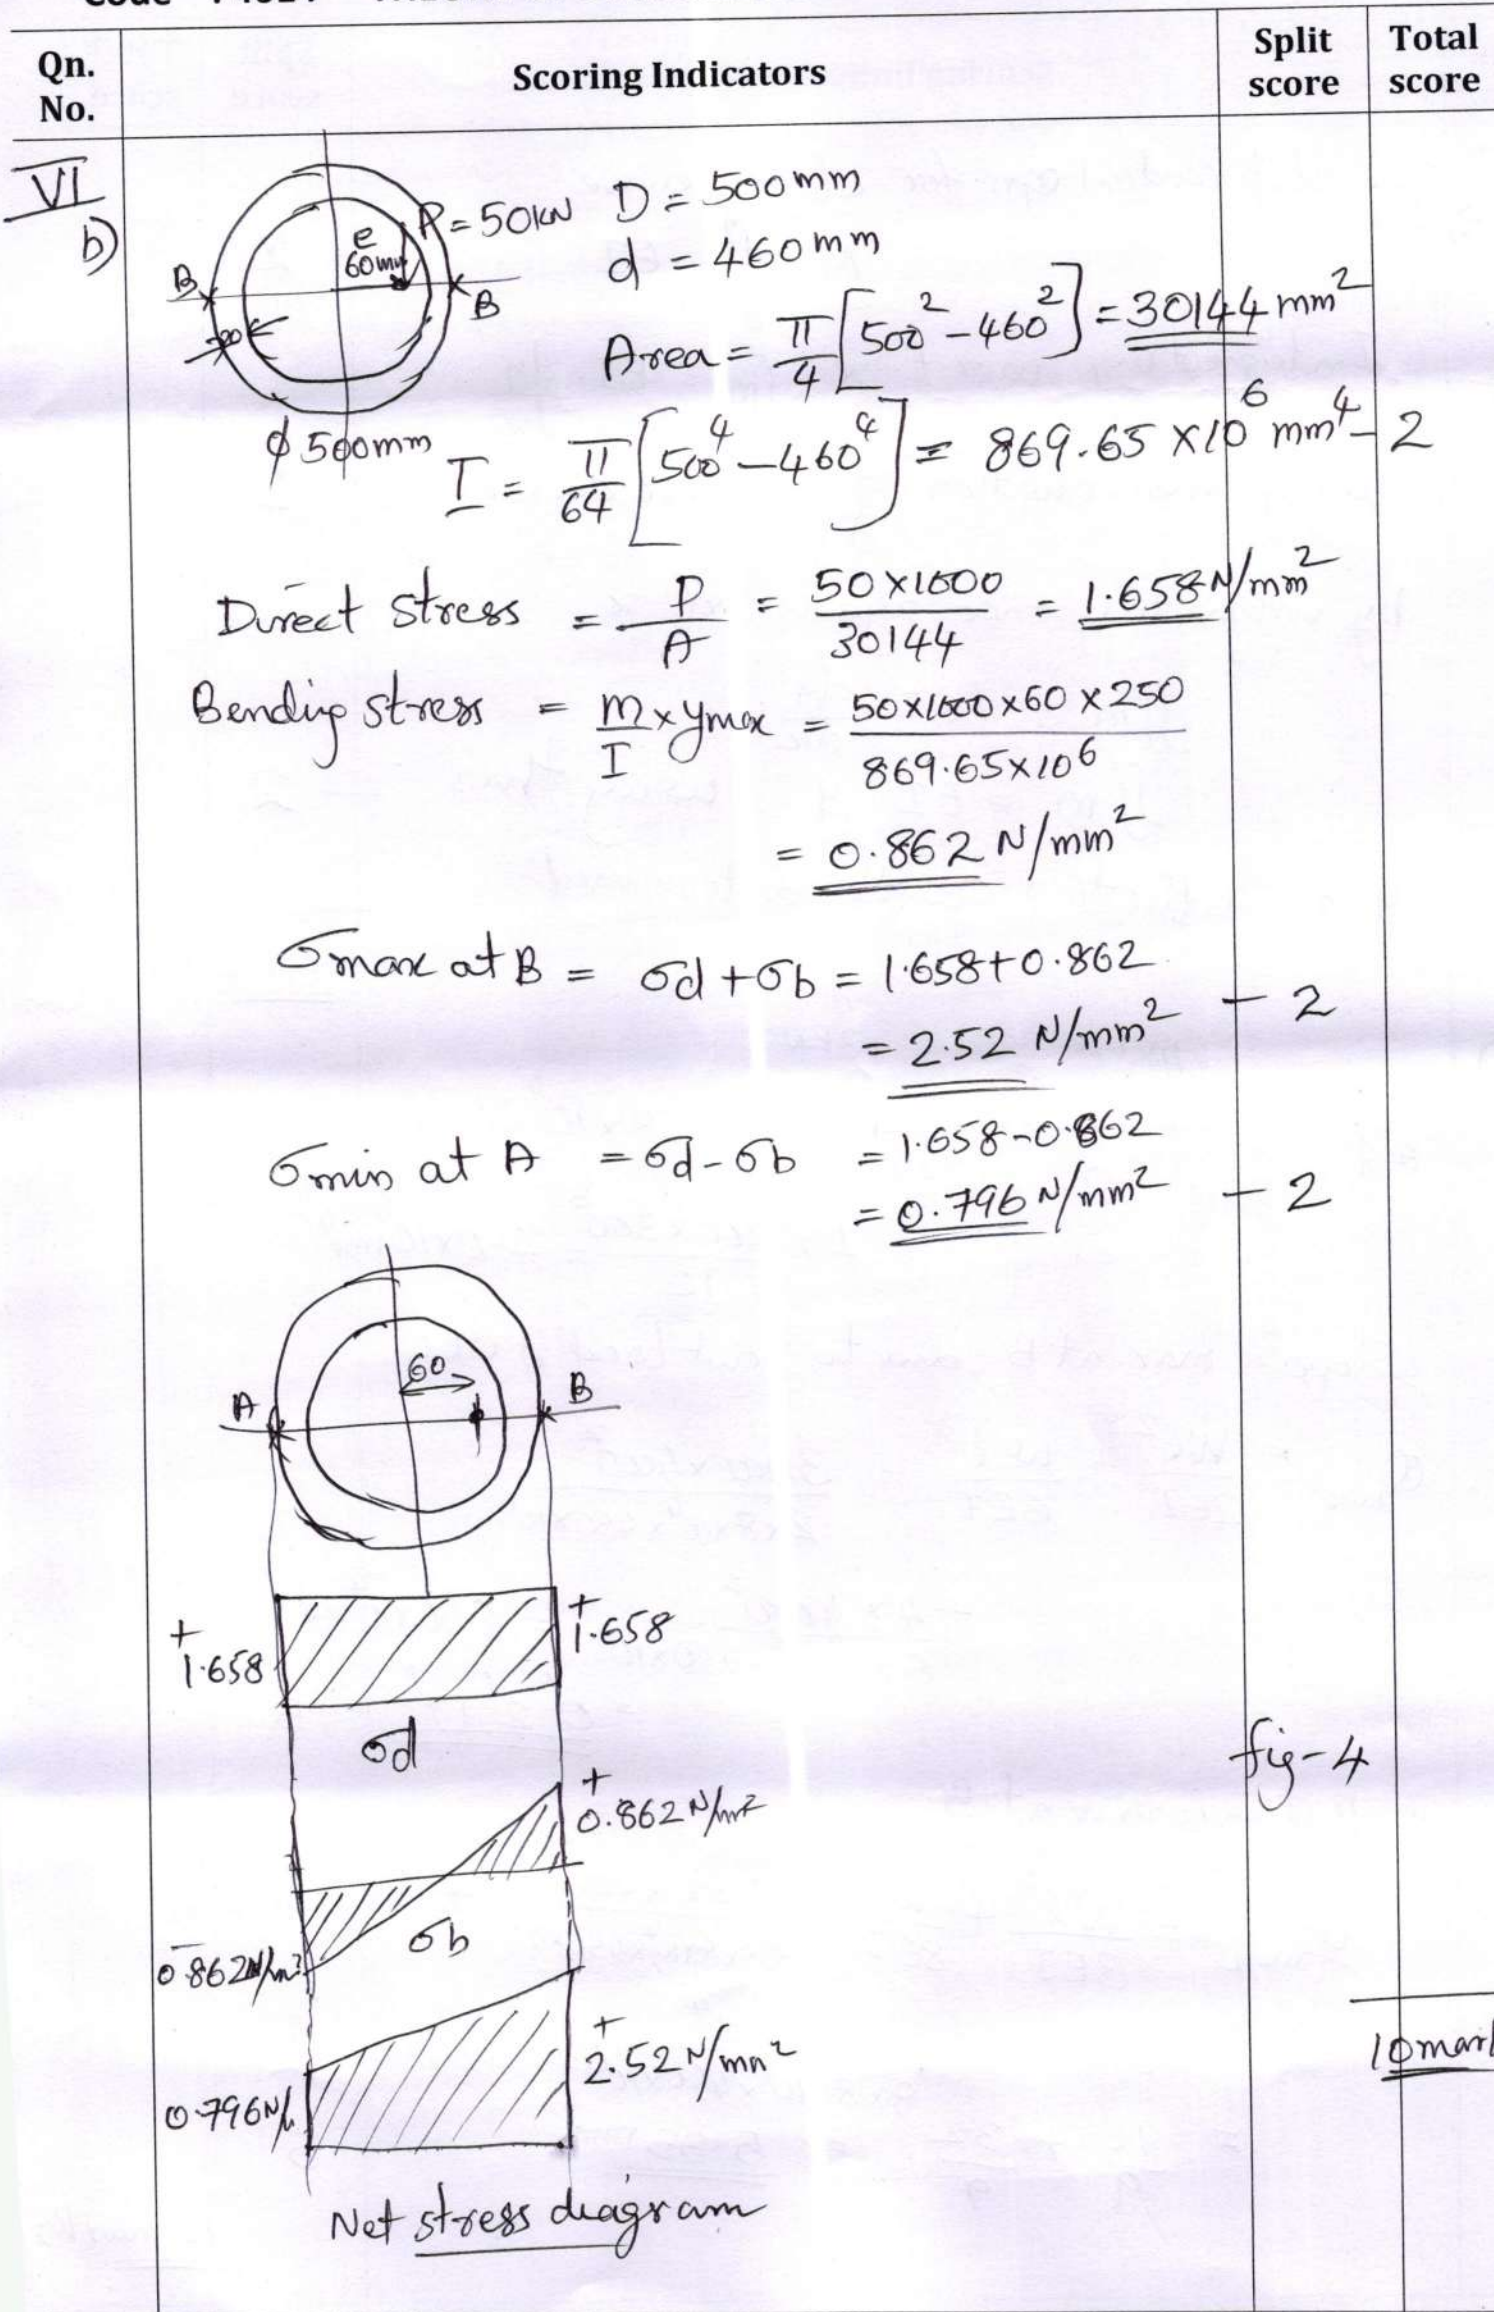 Qn. No.
Scoring Indicators
Split score
Total score
VI
b)
P = 50KN
D = 500mm
e
60mm
d = 460mm
B
B
Area = π/4 [500² - 460²] = 30144 mm²
φ 500mm
I = π/64 [500⁴ - 460⁴] = 869.65 × 10⁶ mm⁴ - 2
Direct stress = P/A = 50×1000/30144 = 1.658 N/mm²
Bending stress = m/I × ymax = 50×1000×60×250/869.65×10⁶
= 0.862 N/mm²
σmax at B = σd + σb = 1.658 + 0.862
= 2.52 N/mm² - 2
σmin at A = σd - σb = 1.658 - 0.862
= 0.796 N/mm² - 2
60
A
B
+ 1.658
+ 1.658
σd
fig-4
+ 0.862 N/mm²
σb
- 0.862N/m²
+ 2.52 N/mm²
0.796N/
10mark
Net stress diagram